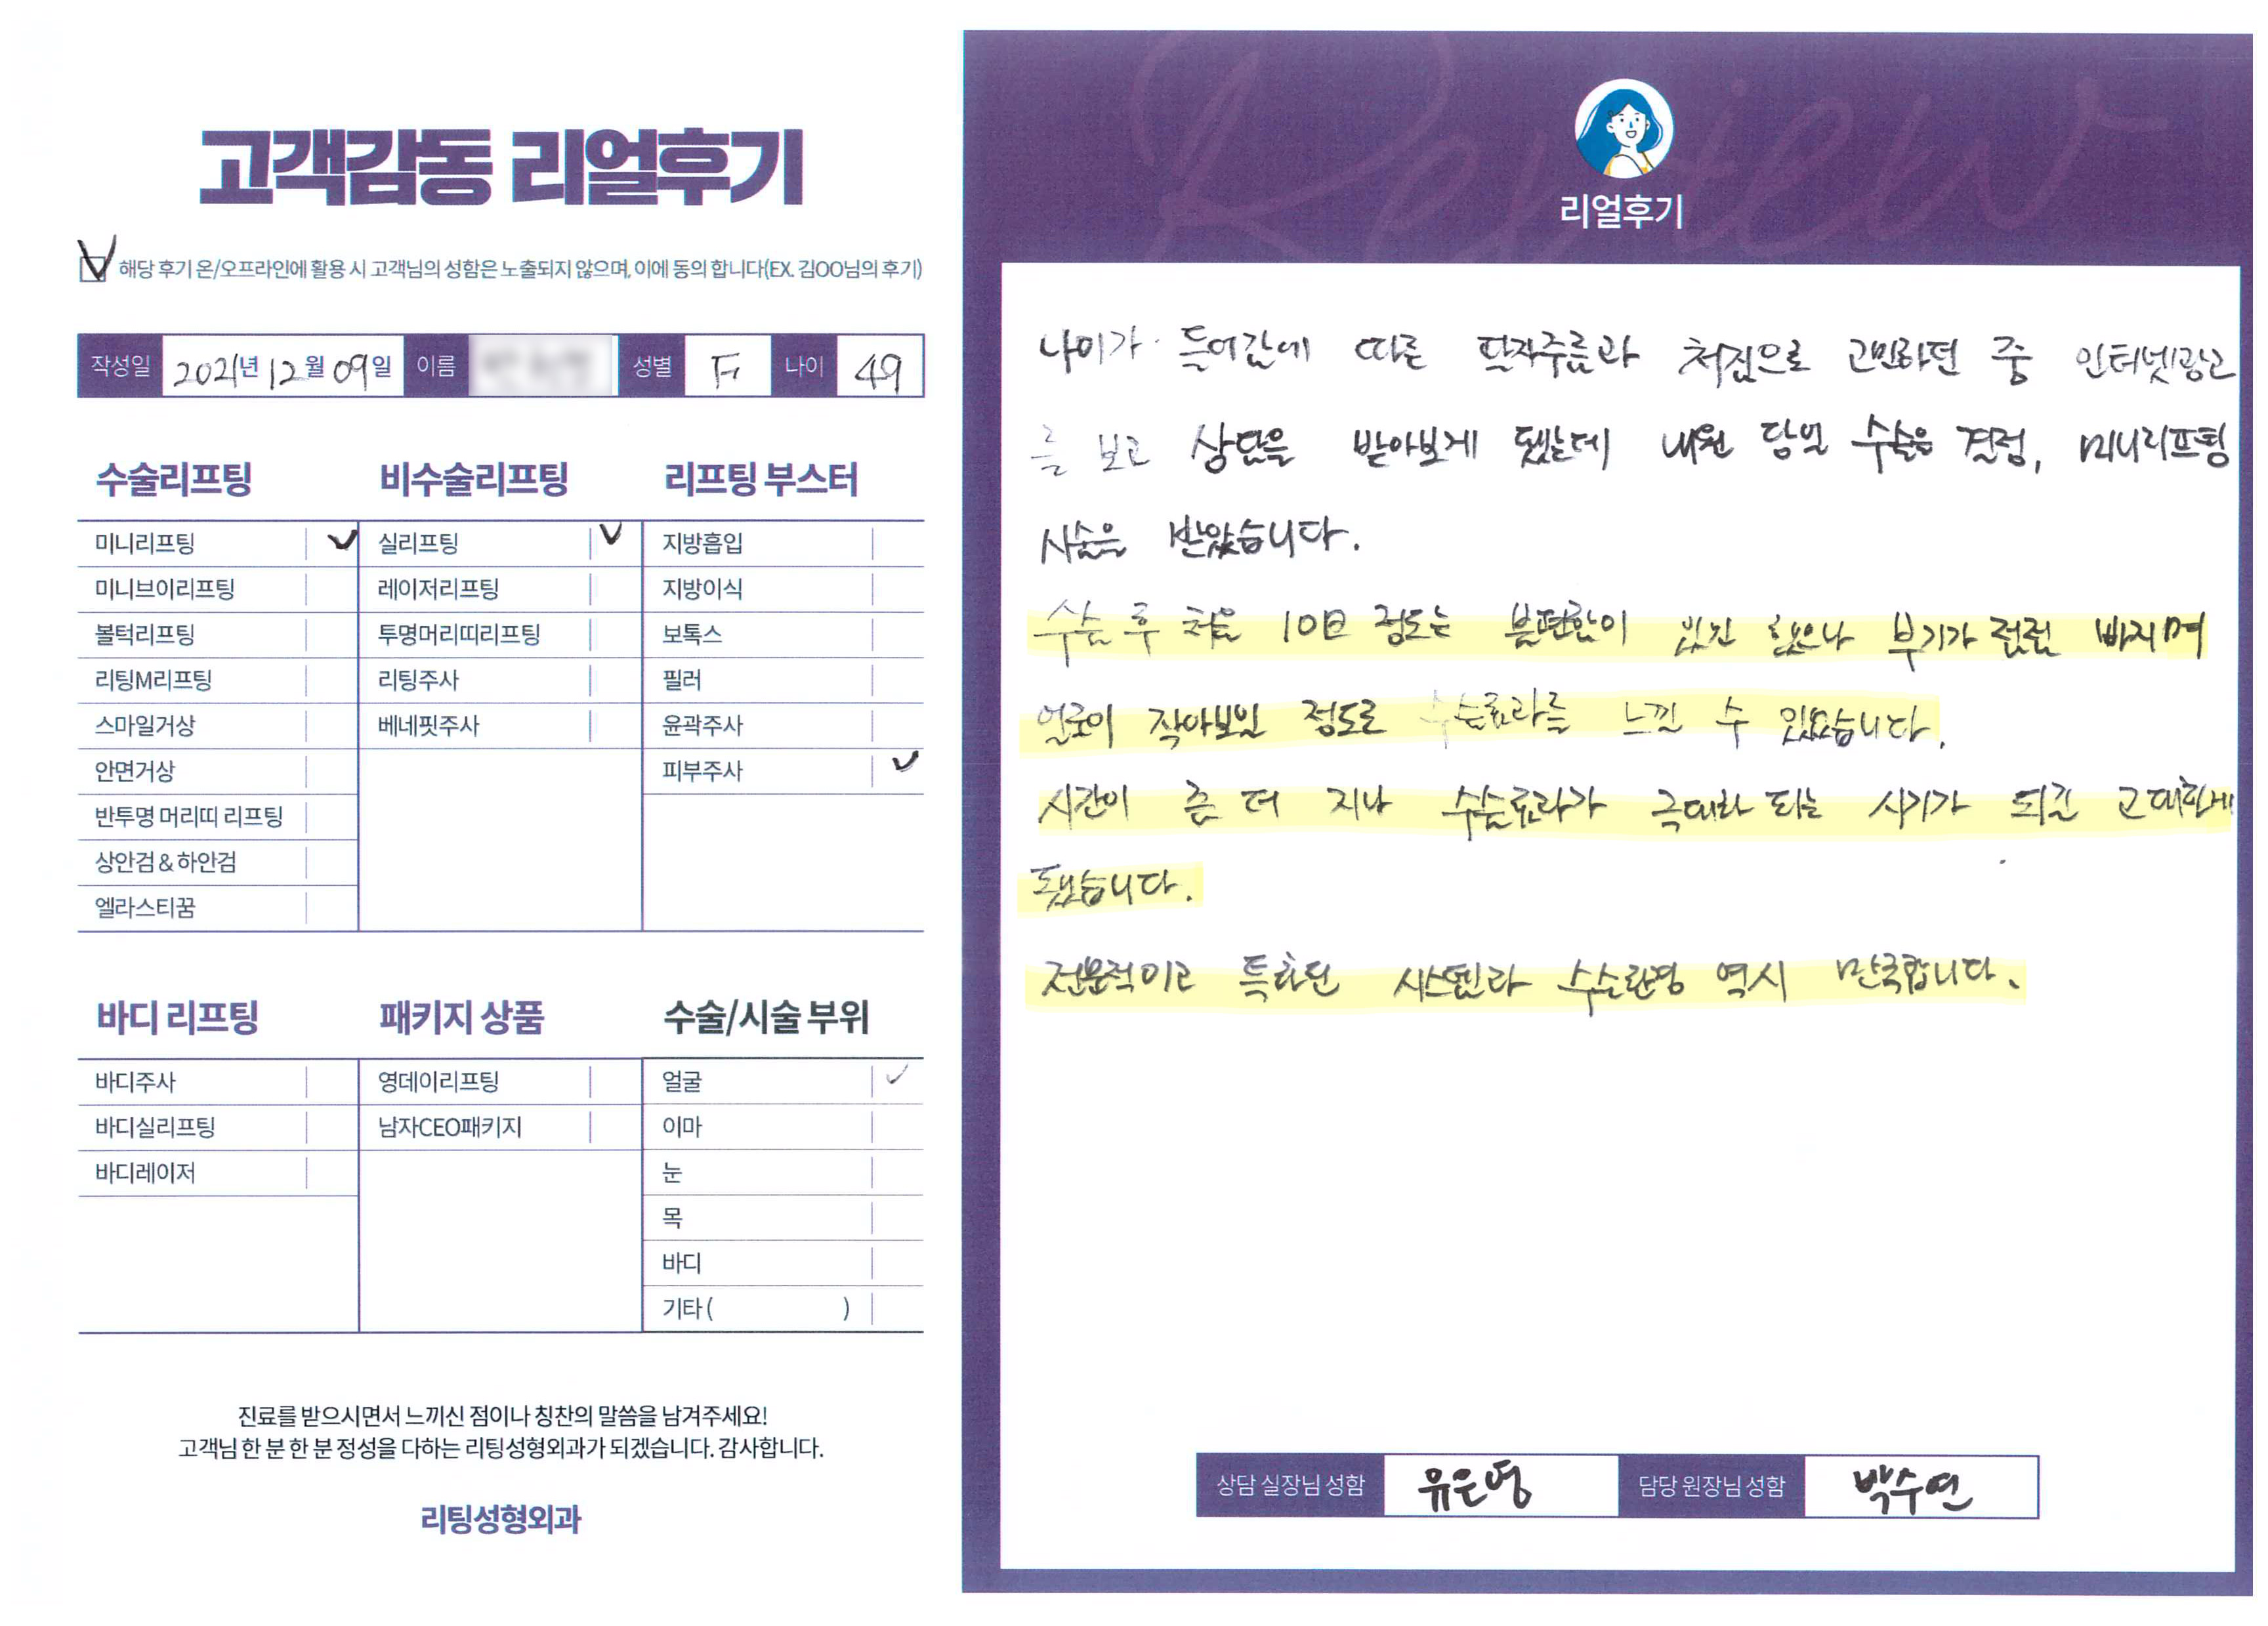 고객감동 리얼후기
해당 후기 온/오프라인에 활용 시 고객님의 성함은 노출되지 않으며, 이에 동의 합니다(EX. 김OO님의 후기)
작성일 2021년 12월 09일 이름 성별 F 나이 49
수술리프팅
미니리프팅
미니브이리프팅
볼턱리프팅
리팅M리프팅
스마일거상
안면거상
반투명 머리띠 리프팅
상안검&하안검
엘라스티꿈
비수술리프팅
실리프팅
레이저리프팅
투명머리띠리프팅
리팅주사
베네핏주사
리프팅 부스터
지방흡입
지방이식
보톡스
필러
윤곽주사
피부주사
바디 리프팅
바디주사
바디실리프팅
바디레이저
패키지 상품
영데이리프팅
남자CEO패키지
수술/시술 부위
얼굴
이마
눈
목
바디
기타 ( )
진료를 받으시면서 느끼신 점이나 칭찬의 말씀을 남겨주세요!
고객님 한 분 한 분 정성을 다하는 리팅성형외과가 되겠습니다. 감사합니다.
리팅성형외과
Review
리얼후기
나이가 들어감에 따른 팔자주름과 처짐으로 고민하던 중 인터넷광고
를 보고 상담을 받아보게 됐는데 내원 당일 수술을 결정, 미니리프팅
시술을 받았습니다.
수술 후 처음 10日 정도는 불편함이 있긴 했으나 부기가 점점 빠지며
얼굴이 작아보일 정도로 수술효과를 느낄 수 있었습니다.
시간이 좀 더 지나 수술효과가 극대화 되는 시기가 되길 고대하게
됐습니다.
전문적이고 특화된 시스템과 수술환경 역시 만족합니다.
상담 실장님 성함 유은영 담당 원장님 성함 박수연